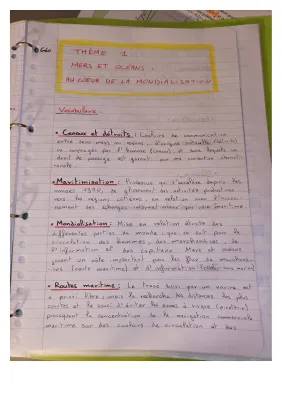 Géo
THÈME 1
MERS ET OCÉANS :
AU COEUR DE LA MONDIALISATION
Vocabulaire
• Canaux et détroits : Couloirs de communication
entre deux mers ou océans, d'origine naturelle (détroits)
ou aménagés par l'homme (canaux) et dans lesquels un
droit de passage est garanti par une convention
• Maritimisation : Processus qui s'accélère depuis les
années 1970, de glissement des activités productives
vers les régions côtières, en relation avec
des échanges internationaux par voie maritime.
• Mondialisation : Mise en relation étroite des
différentes parties du monde, que ce soit pour la
circulation des hommes, des marchandises, de
l'information et des capitaux. Mers et océans
jouent un rôle important pour les flux de
(route maritime) et d'information
• Routes maritime : Le tracé suivi par un navire est
à priori libre, mais la recherche des distances les plus
courtes et le souci d'éviter les zones à risque (piraterie)
provoquent la concentration de la navigation commerciale
maritime sur des couloirs de circulation et des